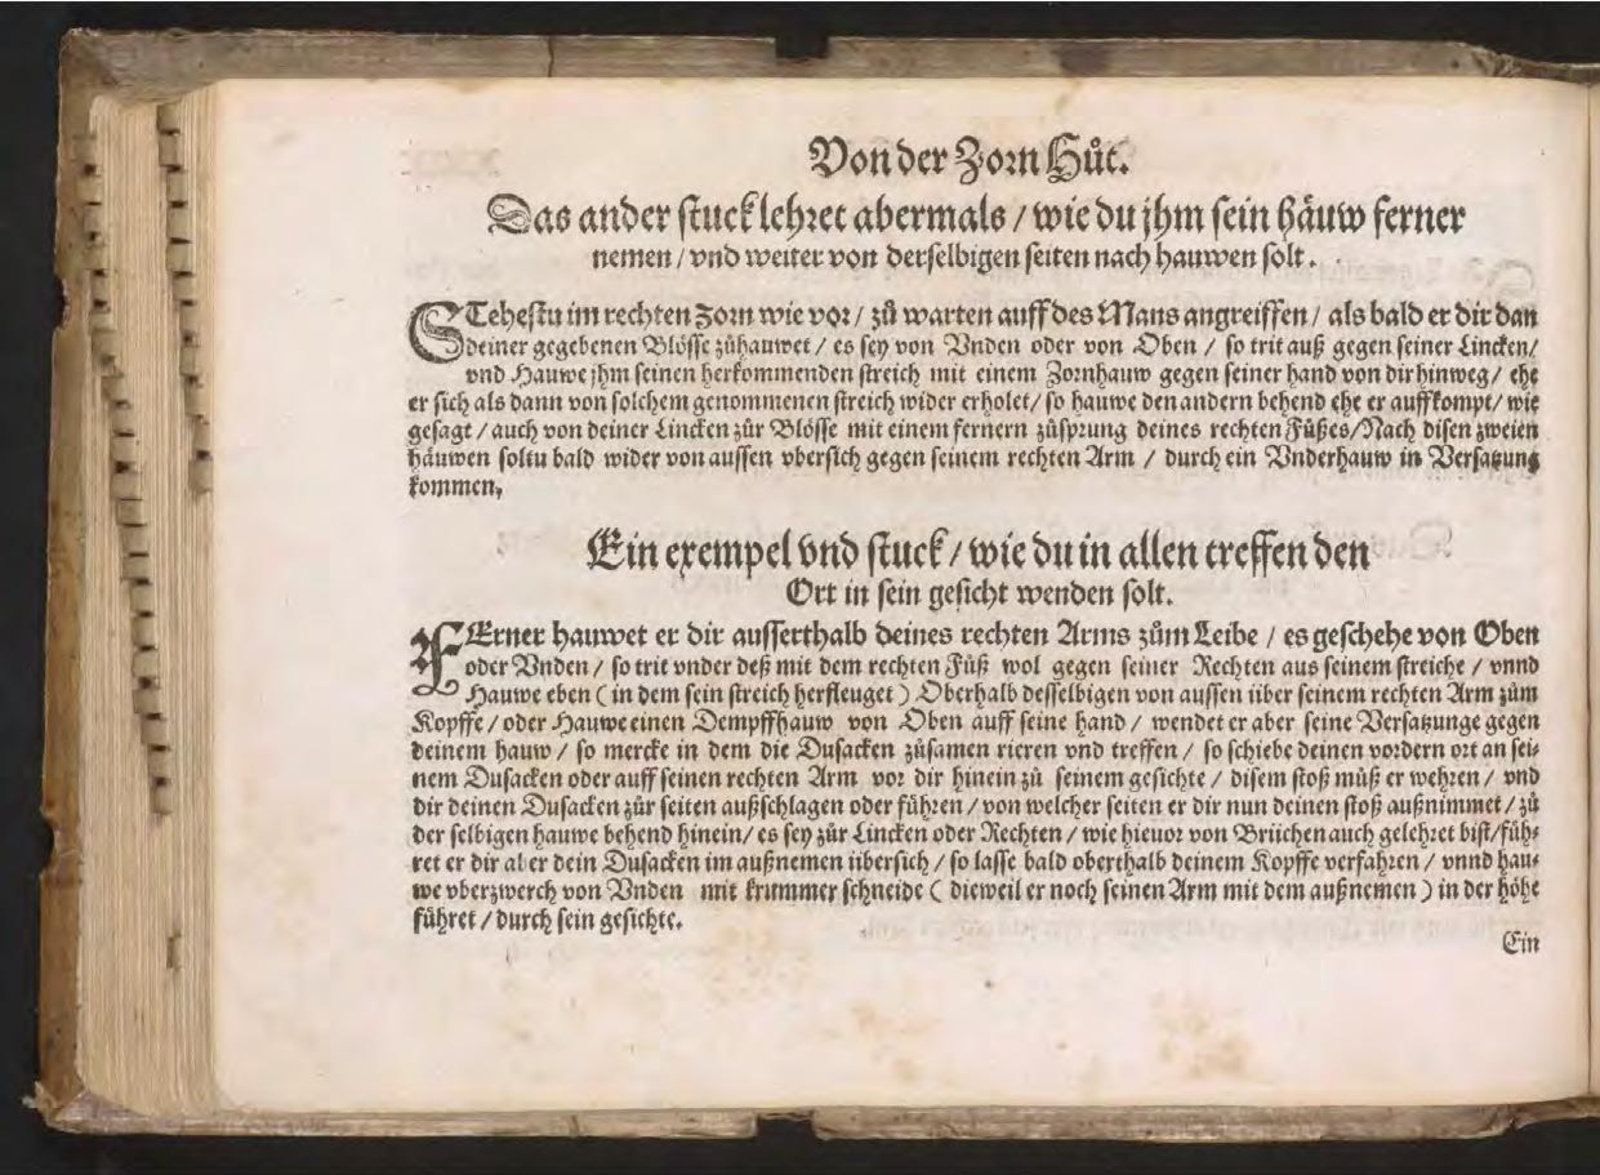 Von der Zorn Hůt.
Das ander stuck lehret abermals / wie du jhm sein häuw ferner
nemen / vnd weiter von derselbigen seiten nach hauwen solt.
STehestu im rechten Zorn wie vor / zů warten auff des Mans angreiffen / als bald er dir dan
deiner gegebenen Blösse zůhauwet / es sey von Vnden oder von Oben / so trit auß gegen seiner Lincken /
vnd Hauwe jhm seinen herkommenden streich mit einem Zornhauw gegen seiner hand von dir hinweg / ehe
er sich als dann von solchem genommenen streich wider erholet / so hauwe den andern behend ehe er auffkompt / wie
gesagt / auch von deiner Lincken zůr Blösse mit einem fernern zůsprung deines rechten Fůßes / Nach disen zweien
häuwen soltu bald wider von aussen vbersich gegen seinem rechten Arm / durch ein Vnderhauw in Versatzung
kommen,
Ein exempel vnd stuck / wie du in allen treffen den
Ort in sein gesicht wenden solt.
FErner hauwet er dir ausserthalb deines rechten Arms zům Leibe / es geschehe von Oben
oder Vnden / so trit vnder deß mit dem rechten Fůß wol gegen seiner Rechten aus seinem streiche / vnnd
Hauwe eben ( in dem sein streich herfleuget ) Oberhalb desselbigen von aussen über seinem rechten Arm zům
Kopffe / oder Hauwe einen Dempffhauw von Oben auff seine hand / wendet er aber seine Versatzunge gegen
deinem hauw / so mercke in dem die Dusacken zůsamen rieren vnd treffen / so schiebe deinen vordern ort an sei⸗
nem Dusacken oder auff seinen rechten Arm vor dir hinein zů seinem gesichte / disem stoß můß er wehren / vnd
dir deinen Dusacken zůr seiten außschlagen oder führen / von welcher seiten er dir nun deinen stoß außnimmet / zů
der selbigen hauwe behend hinein / es sey zůr Lincken oder Rechten / wie hieuor von Brüchen auch gelehret bist / füh⸗
ret er dir aber dein Dusacken im außnemen übersich / so lasse bald oberthalb deinem Kopffe verfahren / vnnd hau⸗
we vberzwerch von Vnden mit krummer schneide ( dieweil er noch seinen Arm mit dem außnemen ) in der höhe
führet / durch sein gesichte.
Ein